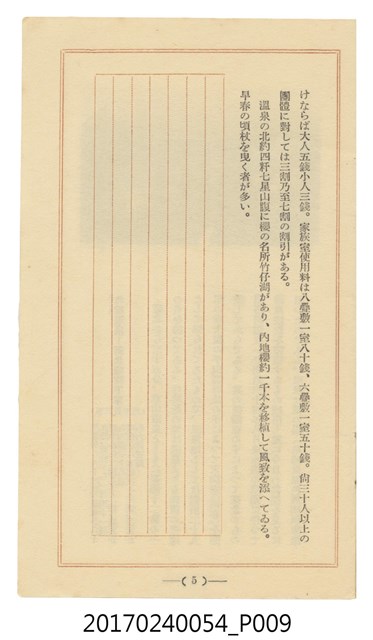 けならば大人五錢小人三錢。家族室使用料は八疊敷一室八十錢、六疊敷一室五十錢。尙三十人以上の
團體に對しては三割乃至七割の割引がある。
溫泉の北約四粁七星山腹に櫻の名所竹仔湖があり、內地櫻約一千本を移植して風致を添へてゐる。
早春の頃杖を曳く者が多い。
—( 5 )—
20170240054_P009